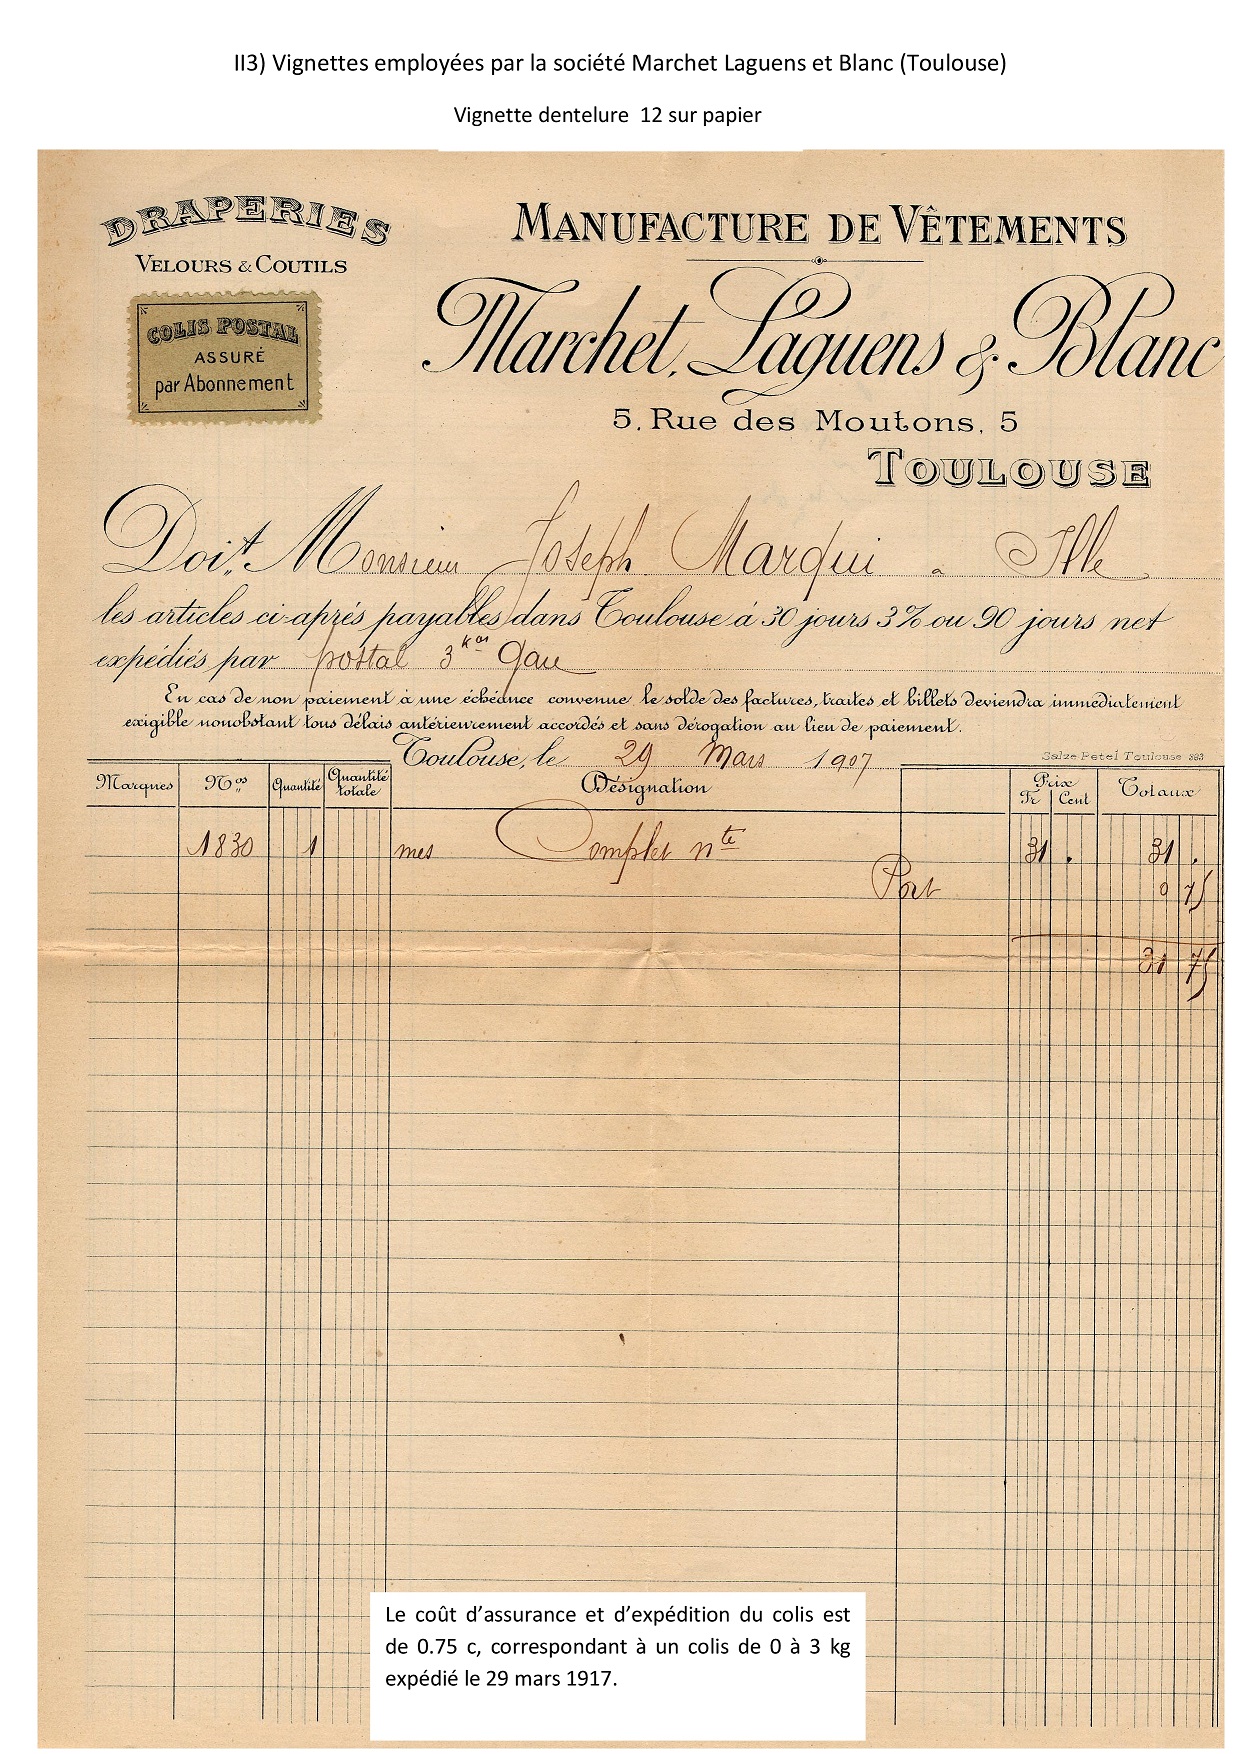 II3) Vignettes employées par la société Marchet Laguens et Blanc (Toulouse)
Vignette dentelure 12 sur papier
DRAPERIES
VELOURS & COUTILS
COLIS POSTAL
ASSURÉ
par Abonnement
MANUFACTURE DE VÊTEMENTS
Marchet, Laguens & Blanc
5, Rue des Moutons, 5
TOULOUSE
Doit Monsieur Joseph Marqui a Ille
les articles ci-après payables dans Toulouse à 30 jours 3% ou 90 jours net
expédiés par postal 3 kos Gare
En cas de non paiement à une échéance convenue le solde des factures, traites et billets deviendra immédiatement
exigible nonobstant tous délais antérieurement accordés et sans dérogation au lieu de paiement.
Toulouse, le 29 Mars 1907
Salze-Petel Toulouse 393
Marques Nos Quantité Quantité totale Désignation Prix Fr Cent Totaux
1830 1 mes Complet nte 31 . 31 .
Port 0 75
31 75
Le coût d’assurance et d’expédition du colis est
de 0.75 c, correspondant à un colis de 0 à 3 kg
expédié le 29 mars 1917.